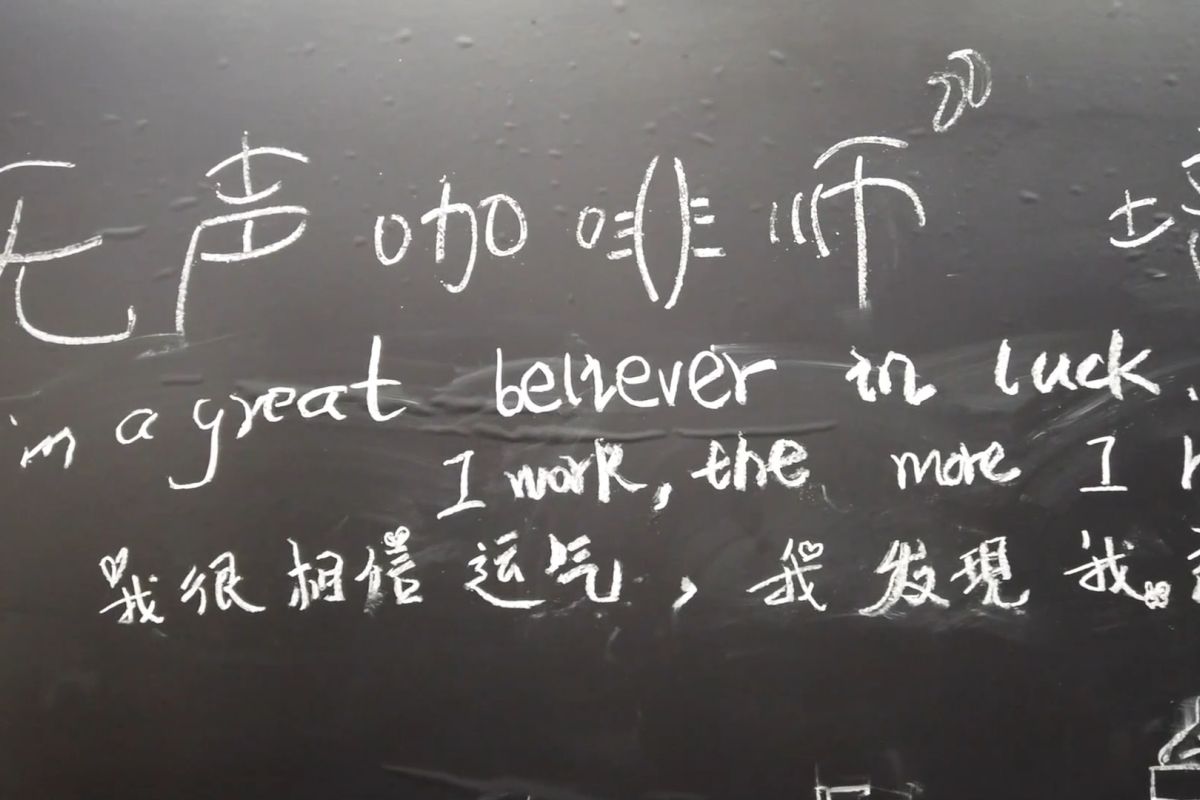 无声咖啡师
I'm a great believer in luck.
I work, the more I
我很相信运气，我发現我